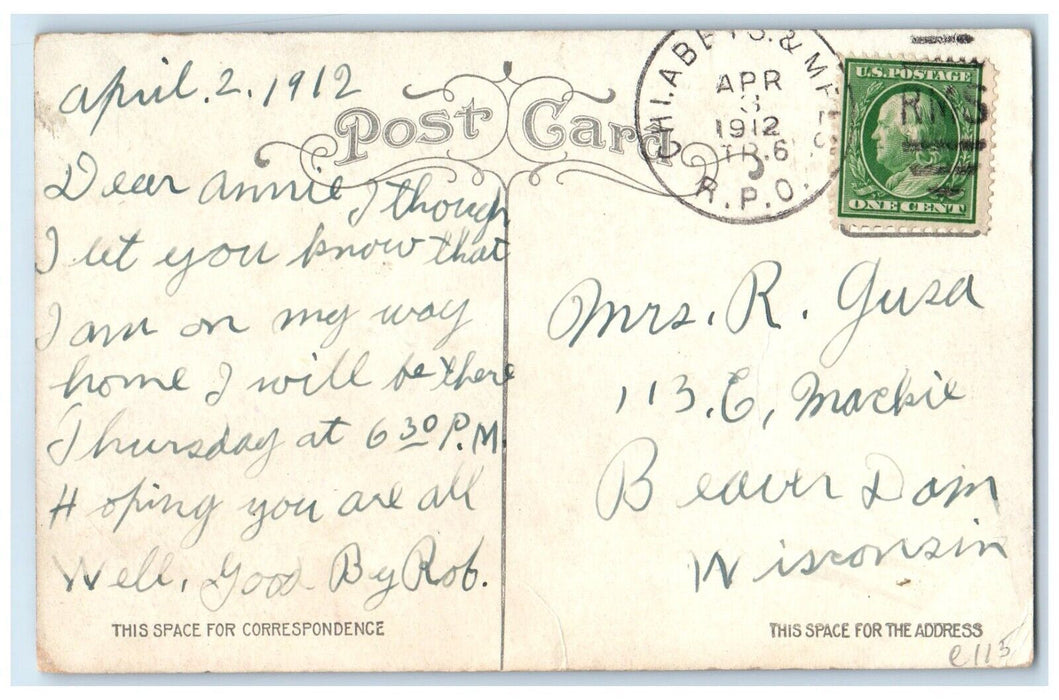 april. 2. 1912
Post Card
Dear annie I though
I let you know that
I am on my way
home I will be there
Thursday at 6 30 P.M.
Hoping you are all
Well, Good By Rob.
THIS SPACE FOR CORRESPONDENCE
CHI. ABE
APR
3
1912
TR.6
R.P.O.
RMS
U.S. POSTAGE
ONE CENT
Mrs. R. Gusa
113. E, Mackie
Beaver Dam
Wisconsin
THIS SPACE FOR THE ADDRESS
e113